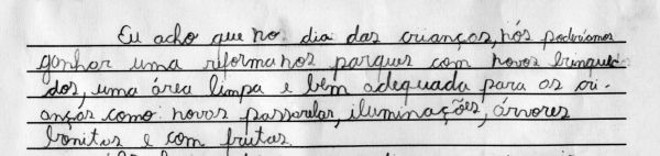 Eu acho que no dia das crianças, nós poderíamos
ganhar uma reforma nos parques com novos brinque
dos, uma área limpa e bem adequada para as cri-
anças como: novas passarelas, iluminações, árvores
bonitas e com frutas.